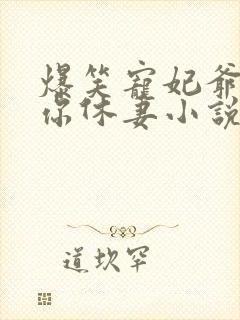 爆笑寵妃爺
你休妻小說
道坎罕